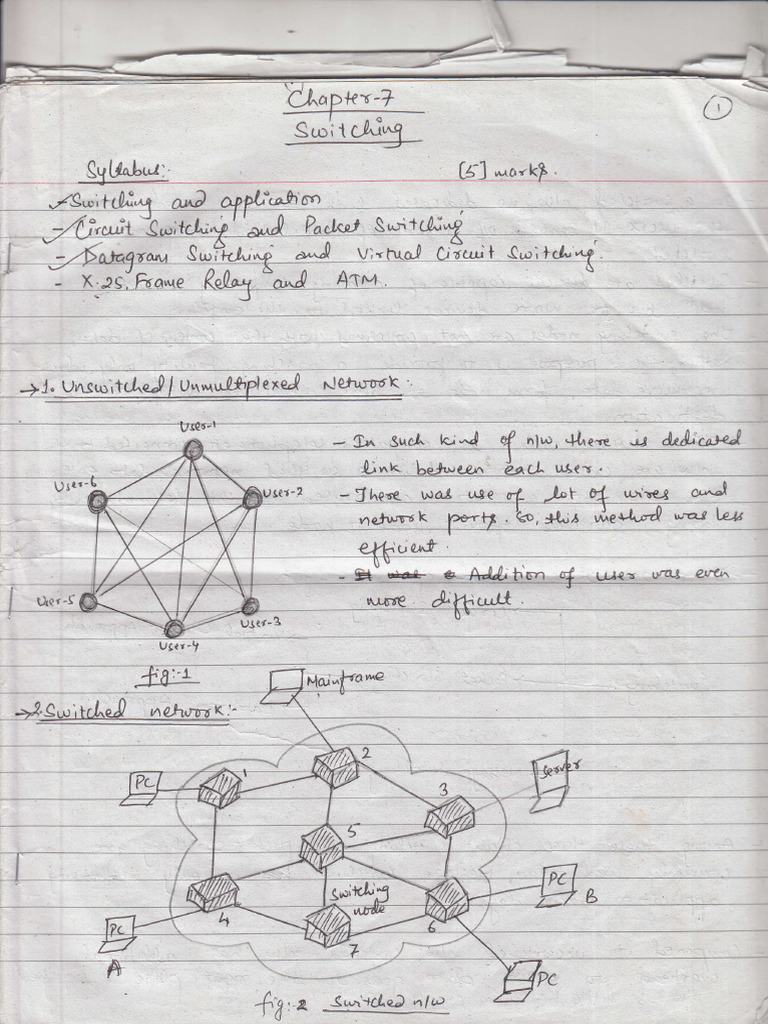 Chapter-7
1
Switching
Syllabus:
[5] marks.
- Switching and application
- Circuit Switching and Packet Switching
- Datagram Switching and Virtual Circuit Switching.
- X.25, Frame Relay and ATM.
→1. Unswitched/Unmultiplexed Network:
User-1
User-6
User-2
User-5
User-3
User-4
fig:-1
- In such kind of n/w, there is dedicated
link between each user.
- There was use of lot of wires and
network ports. So, this method was less
efficient.
- It was Addition of user was even
more difficult.
→2. Switched network:-
Mainframe
PC
1
2
3
Server
5
Switching
node
4
7
6
PC
B
PC
A
PC
fig:-2 Switched n/w